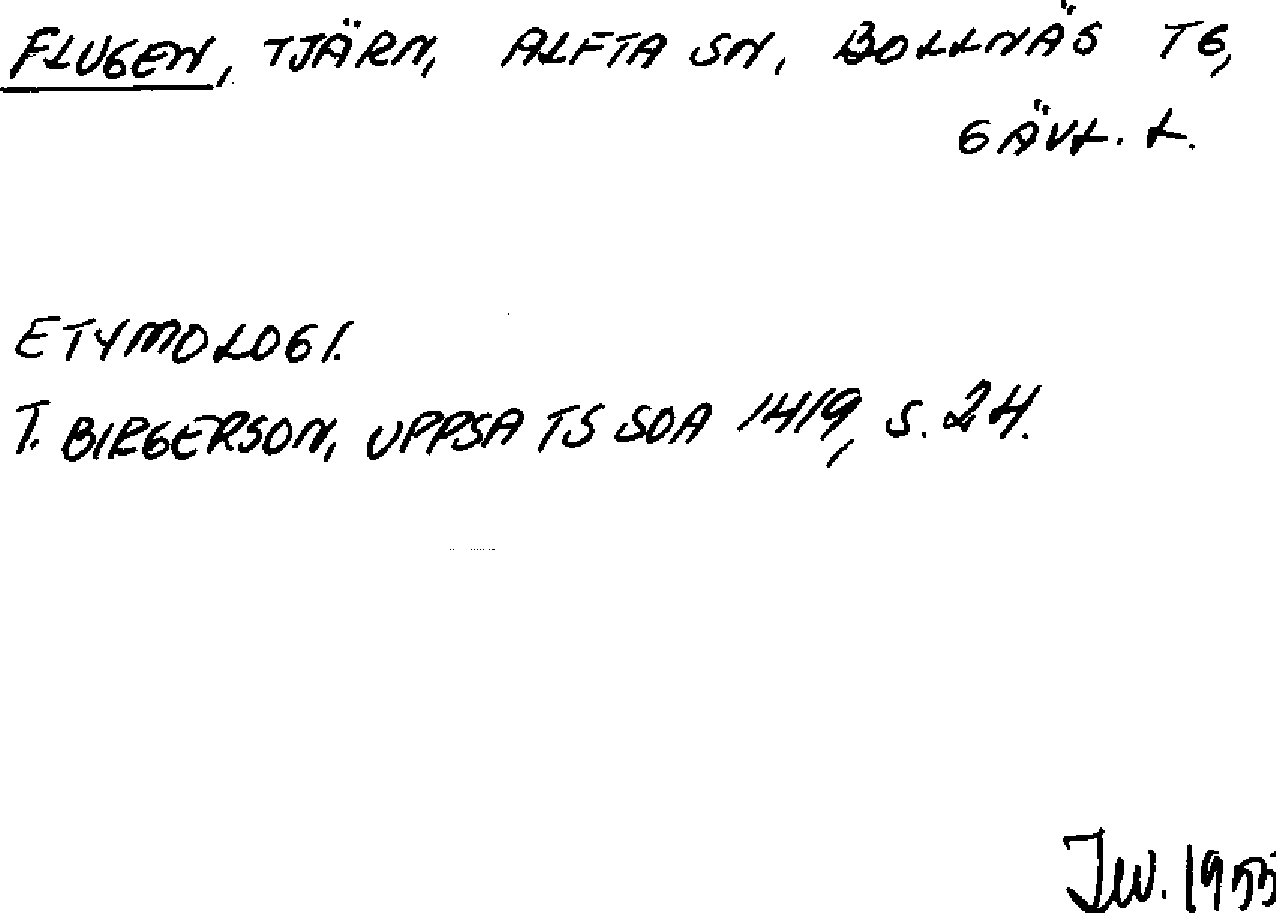 FLUGEN, TJÄRN, ALFTA SN, BOLLNÄS TG,
GÄVL. L.
ETYMOLOGI.
T. BIRGERSON, UPPSATS SOA 1419, S. 24.
JW. 1955